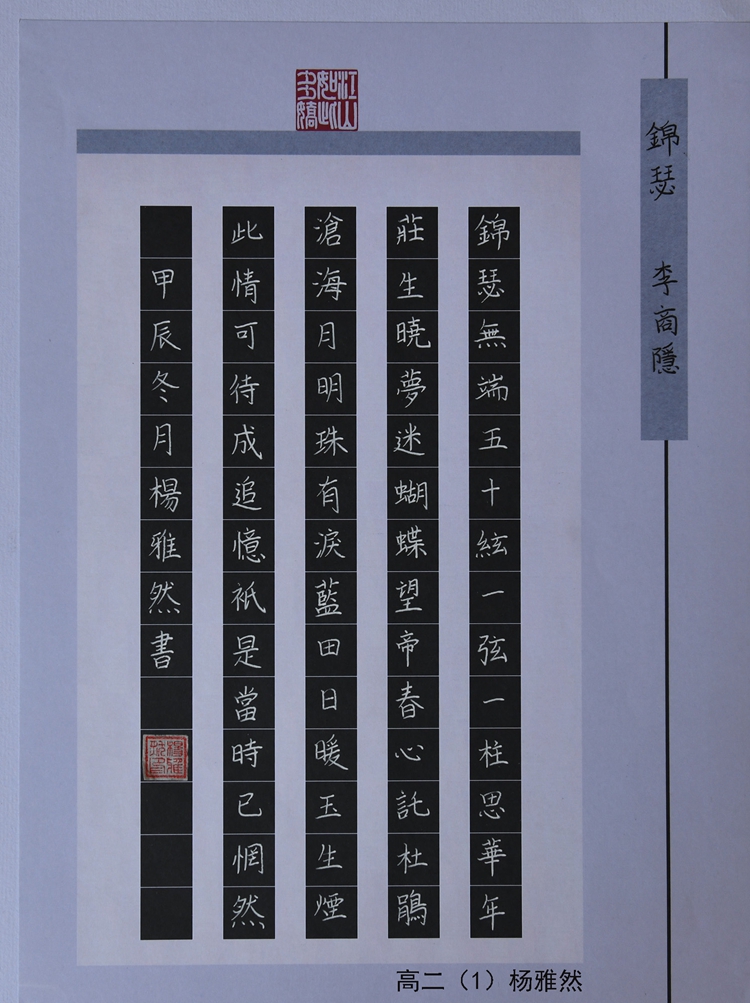 錦瑟 李商隱
江山如此多嬌
錦瑟無端五十絃一弦一柱思華年
莊生曉夢迷蝴蝶望帝春心託杜鵑
滄海月明珠有淚藍田日暖玉生煙
此情可待成追憶衹是當時已惘然
甲辰冬月楊雅然書
高二（1）杨雅然